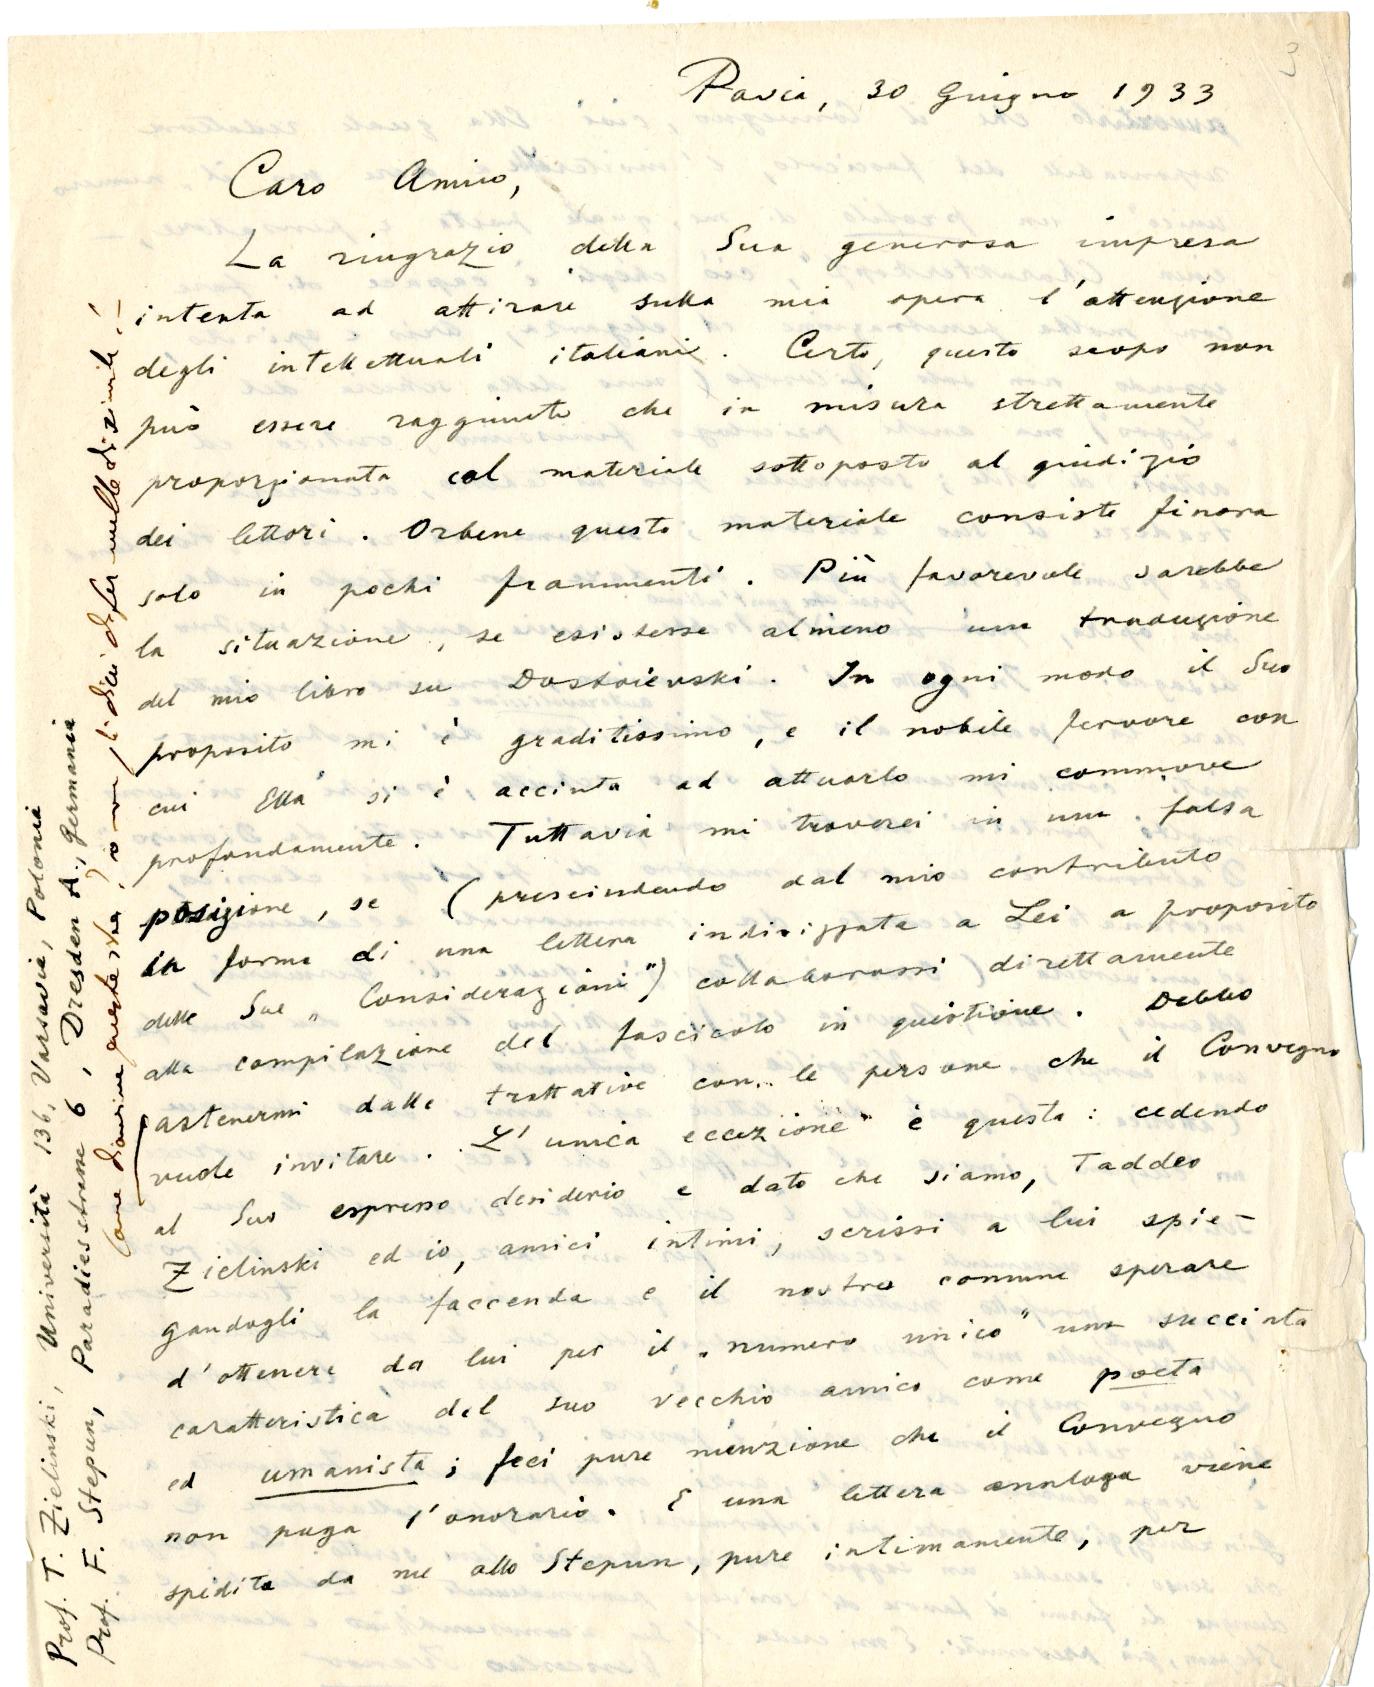 3
Pavia, 30 Giugno 1933
Caro Amico,
La ringrazio della Sua generosa impresa
intenta ad attirare sulla mia opera l'attenzione
degli intellettuali italiani. Certo, questo scopo non
può essere raggiunto che in misura strettamente
proporzionata col materiale sottoposto al giudizio
dei lettori. Orbene questo materiale consiste finora
solo in pochi frammenti. Più favorevole sarebbe
la situazione, se esistesse almeno una traduzione
del mio libro su Dostoievski. In ogni modo il Suo
proposito mi è graditissimo, e il nobile fervore con
cui Ella si è accinto ad attuarlo mi commuove
profondamente. Tuttavia mi troverei in una falsa
posizione, se (prescindendo dal mio contributo
in forma di una lettera indirizzata a Lei a proposito
delle Sue „Considerazioni") collaborassi direttamente
alla compilazione del fascicolo in quistione. Debbo
astenermi dalle trattative con le persone che il Convegno
vuole invitare. L'unica eccezione è questa: cedendo
al Suo espresso desiderio e dato che siamo, Taddeo
Zielinski ed io, amici intimi, scrissi a lui spie-
gandogli la faccenda e il nostro comune sperare
d'ottenere da lui per il „numero unico" una succinta
caratteristica del suo vecchio amico come poeta
ed umanista; feci pure menzione che il Convegno
non paga l'onorario. E una lettera analoga viene
spedita da me allo Stepun, pure intimamente, per
Prof. T. Zielinski, Università 136, Varsavia, Polonia
Prof. F. Stepun, Paradiesstrasse 6, Dresden A., Germania